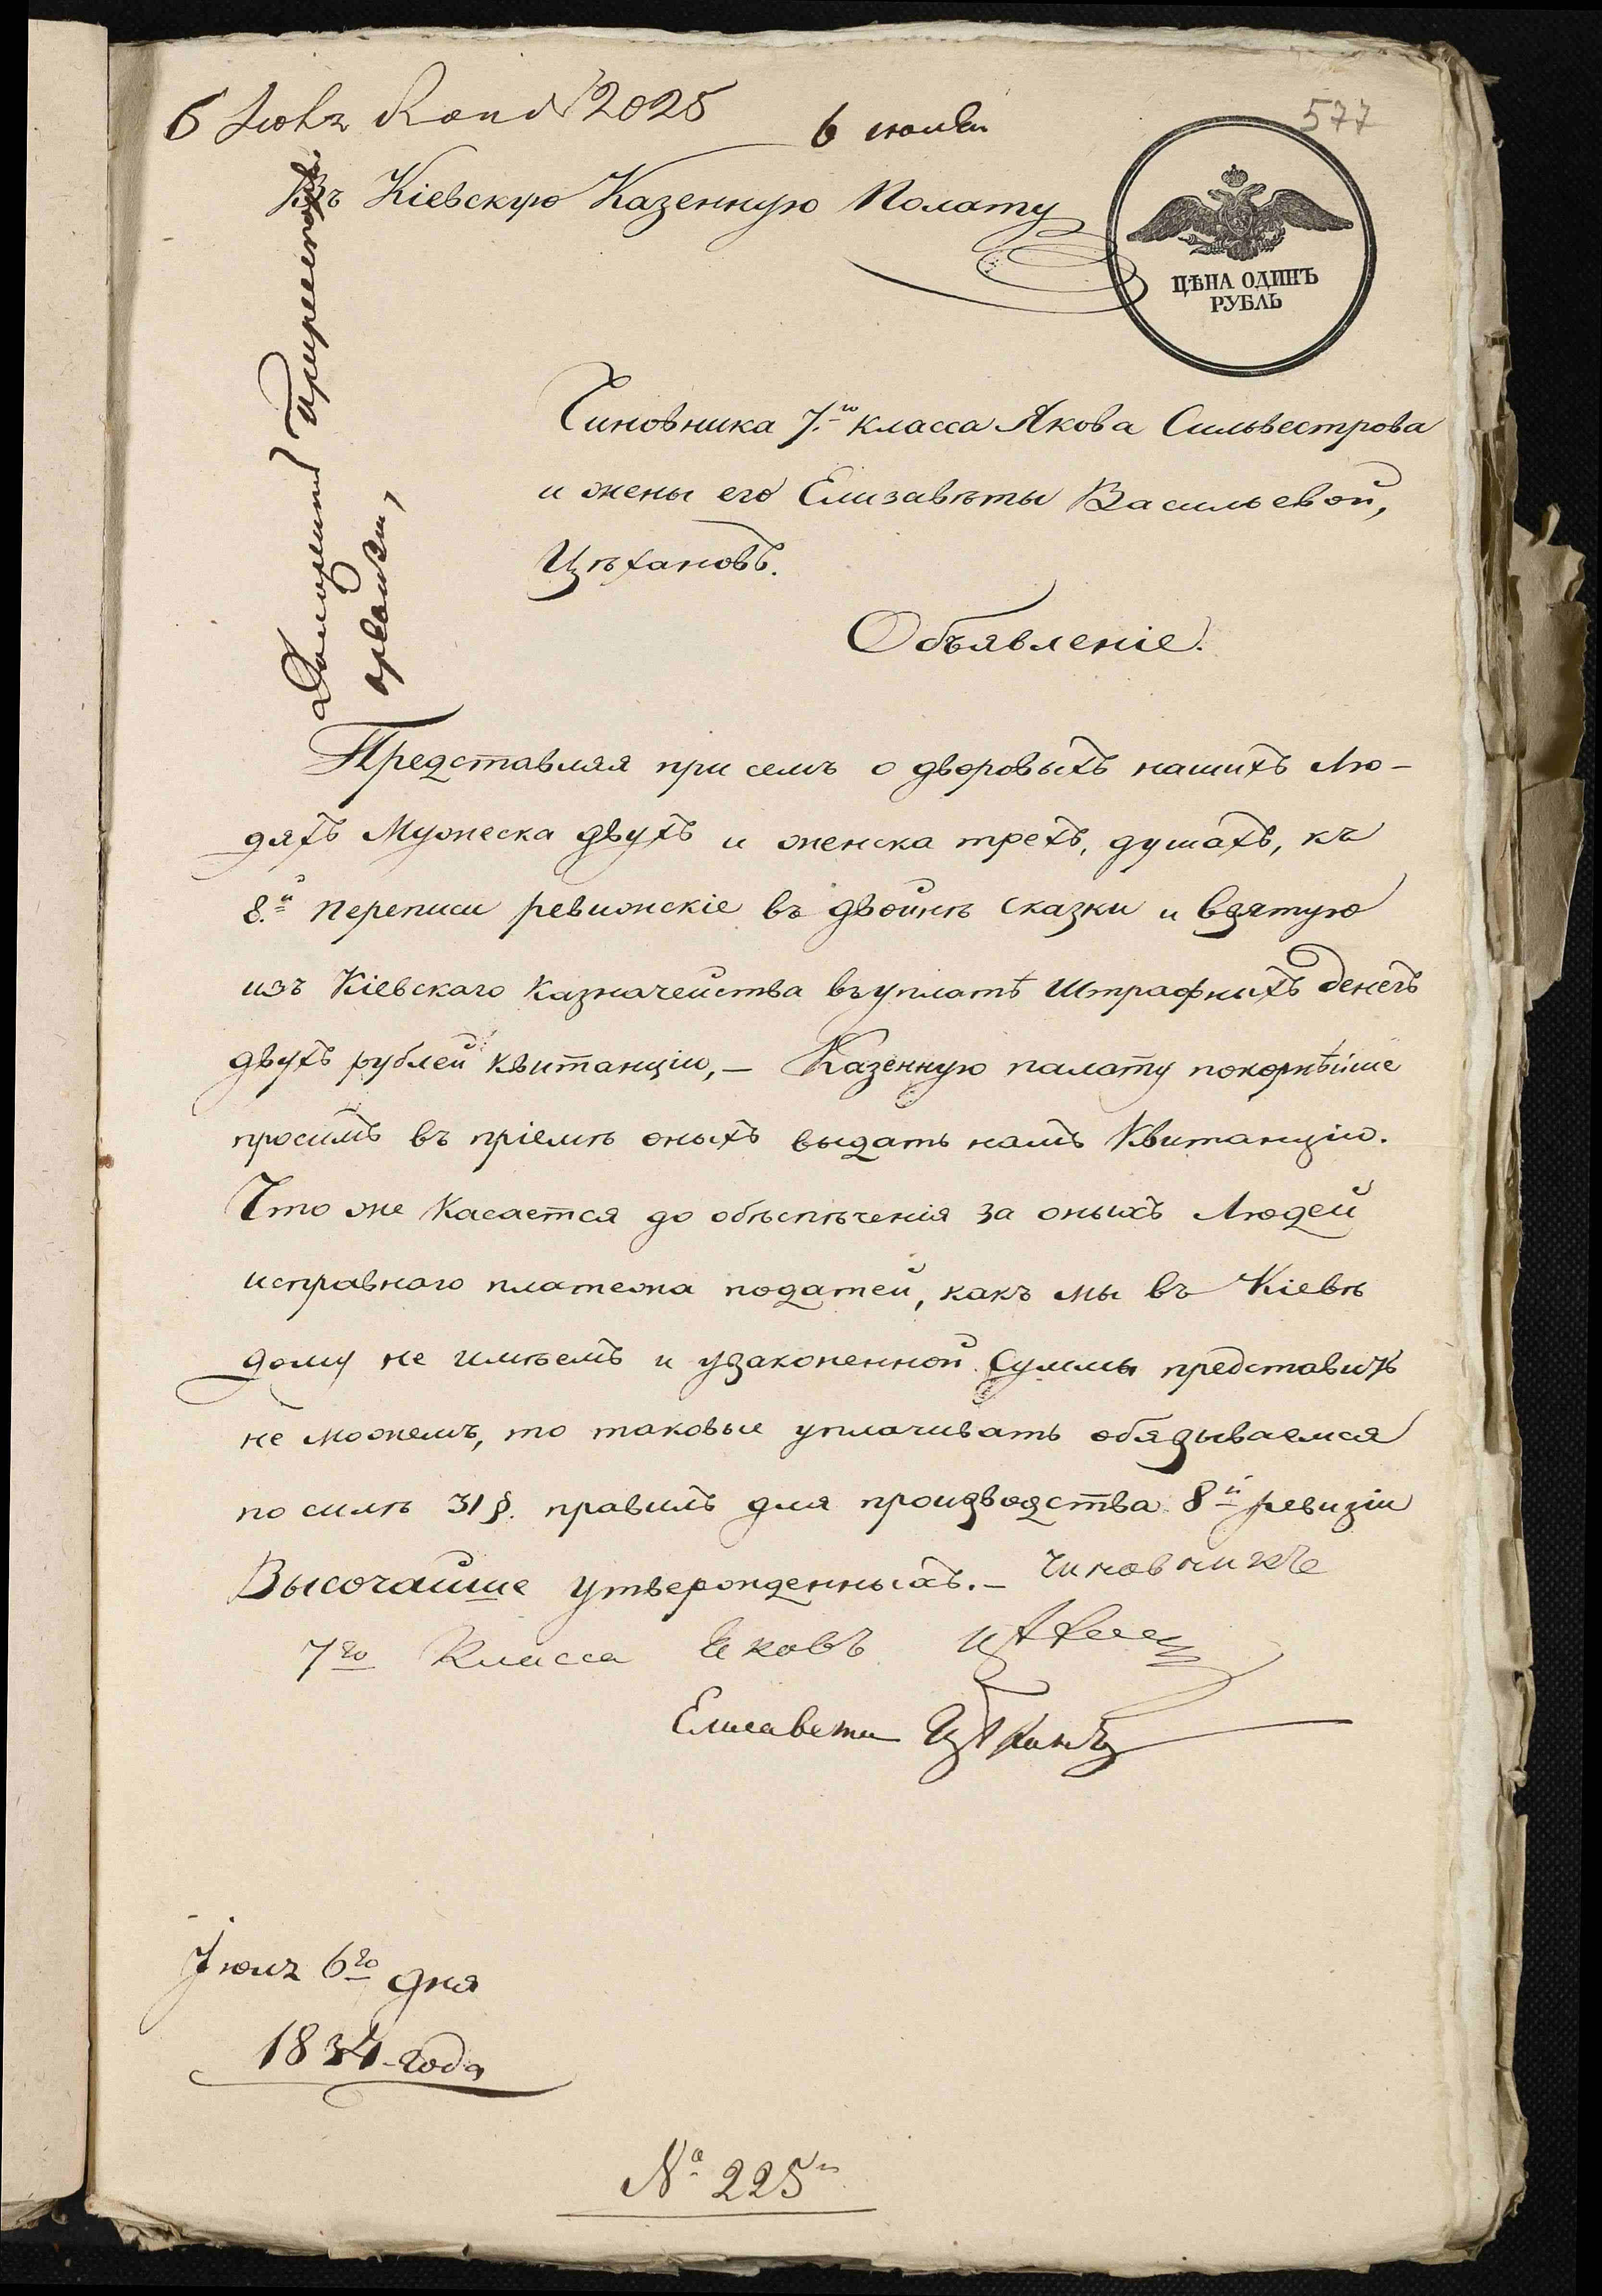 577
6 Июля Конт № 2025
6 июля
Въ Кіевскую Казенную Полату
ЦѢНА ОДИНЪ
РУБЛЬ
Чиновника 7.го класса Якова Сильвестрова
и жены его Елизавѣты Васильевой,
Цѣхановъ.
Объявленіе.
Представляя при семъ о дворовыхъ нашихъ Лю-
дяхъ Мужеска двухъ и женска трехъ, душахъ, къ
8.й переписи ревижскіе въ двойнѣ сказки и взятую
изъ Кіевскаго Казначейства въ уплатѣ Штрафныхъ денегъ
двухъ рублей квитанцію,— Казенную палату покорнѣйше
просимъ въ пріемѣ оныхъ выдать намъ Квитанцію.
Что же Касается до обѣспѣченія за оныхъ Людей
исправнаго платежа податей, какъ мы въ Кіевѣ
дому не имѣемъ и узаконенной Суммы представить
не можемъ, то таковые уплачивать обязываемся
по силѣ 31 §. правилъ для производства 8й ревизіи
Высочайше утвержденныхъ.— Чиновникъ
7го Класса Яковъ
Елисавета Цѣханъ
Іюля 6го дня
1834 года
№ 225